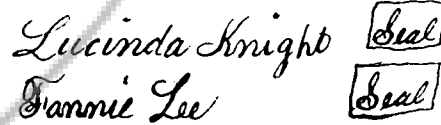 Lucinda Knight Seal
Fannie Lee Seal